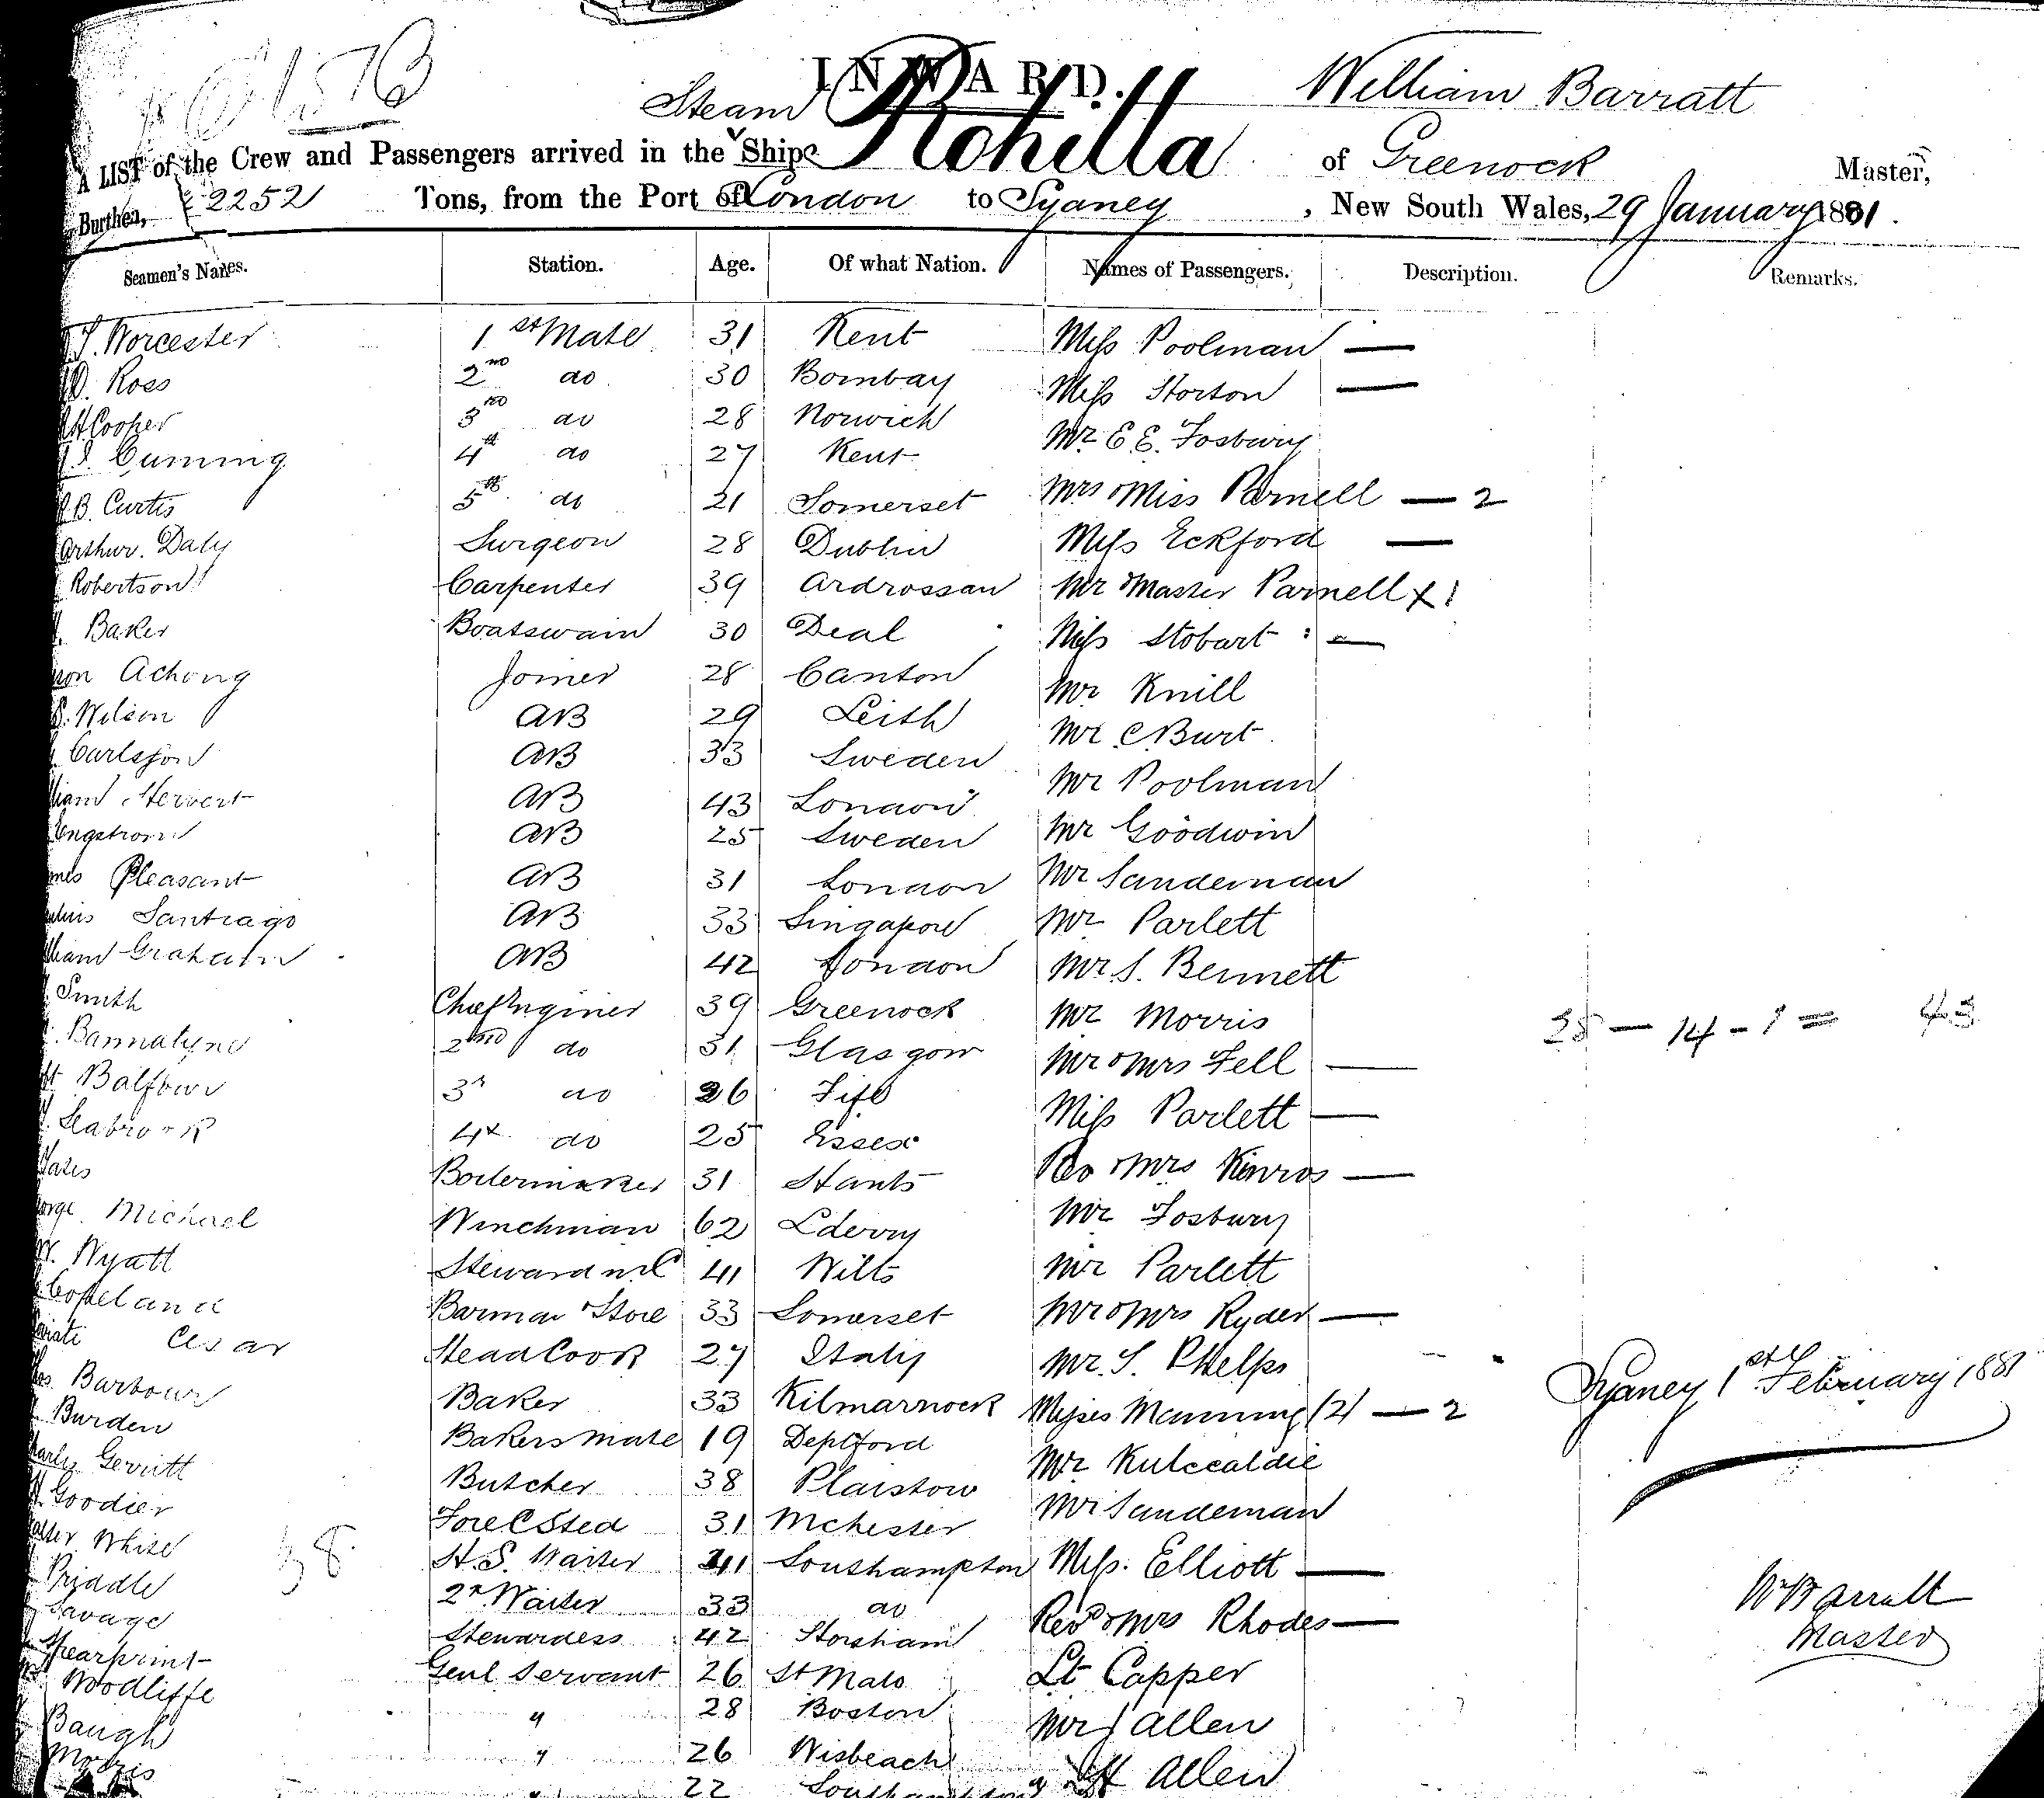 INWARD.
Steam Rohilla William Barratt
A LIST of the Crew and Passengers arrived in the Ship of Greenock Master,
Burthen, 2252 Tons, from the Port of London to Sydney, New South Wales, 29 January 1881.
Seamen's Names. Station. Age. Of what Nation. Names of Passengers. Description. Remarks.
Worcester 1st Mate 31 Kent Miss Poolman —
Ross 2nd do 30 Bombay Miss Horton —
Cooper 3rd do 28 Norwich Mr E E. Fosbury
Cuming 4th do 27 Kent
B. Curtis 5th do 21 Somerset Mrs & Miss Parnell — 2
Arthur. Daly Surgeon 28 Dublin Miss Eckford —
Robertson Carpenter 39 Ardrossan Mr & Master Parnell x 1
Baker Boatswain 30 Deal Miss Stobart —
Achong Joiner 28 Canton Mr Knill
Wilson AB 29 Leith Mr C Burt
Carlsson AB 33 Sweden Mr Poolman
Herbert AB 43 London
Engstrom AB 25 Sweden Mr Goodwin
Pleasant AB 31 London Mr Sandeman
Santiago AB 33 Singapore Mr Parlett
Graham AB 42 London Mr S. Bennett
Smith Chief Enginer 39 Greenock Mr Morris
Bannatyne 2nd do 31 Glasgow Mr & Mrs Fell —
Balfour 3r do 26 Fife Miss Parlett —
Seabrook 4th do 25 Essex
Boilermaker 31 Hants Rev & Mrs Kinros —
Michael Winchman 62 Lderry Mr Fosbury
Wyatt Steward 41 Wilts Mr Parlett
Copeland Barman & Store 33 Somerset Mr & Mrs Ryder —
Cesar Head Cook 27 Italy Mr. S. Phelps
Barbour Baker 33 Kilmarnock Misses Manning (2) — 2
Burden Bakers Mate 19 Deptford Mr
Gerritt Butcher 38 Plaistow Mr Sandeman
Goodier Fore C Sted 31 Mchester
White H. S. Waiter 41 Southampton Miss. Elliott —
Priddle 2n Waiter 33 do Revd & Mrs Rhodes —
Savage Stewardess 42 Horsham
Spearpoint Genl Servant 26 St Malo Lt Capper
Woodliffe " 28 Boston Mr J Allen
Baugh " 26 Wisbeach
Morris " 22 Southampton " Allen
38
25 — 14 - 1 = 43
Sydney 1st February 1881
W Barratt
Master